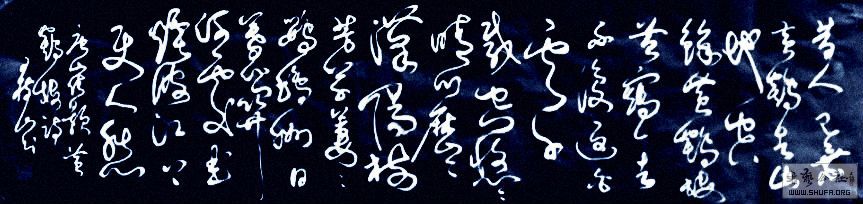 昔人已乘
黄鶴去此
地空
餘黄鶴樓
黄鶴一去
不復返白
雲千
載空悠悠
晴川歷歷
漢陽樹
芳草萋萋
鸚鵡洲日
暮鄉關
何處是
煙波江上
使人愁
唐崔顥黄
鶴樓詩
WWW.SHUFA.ORG